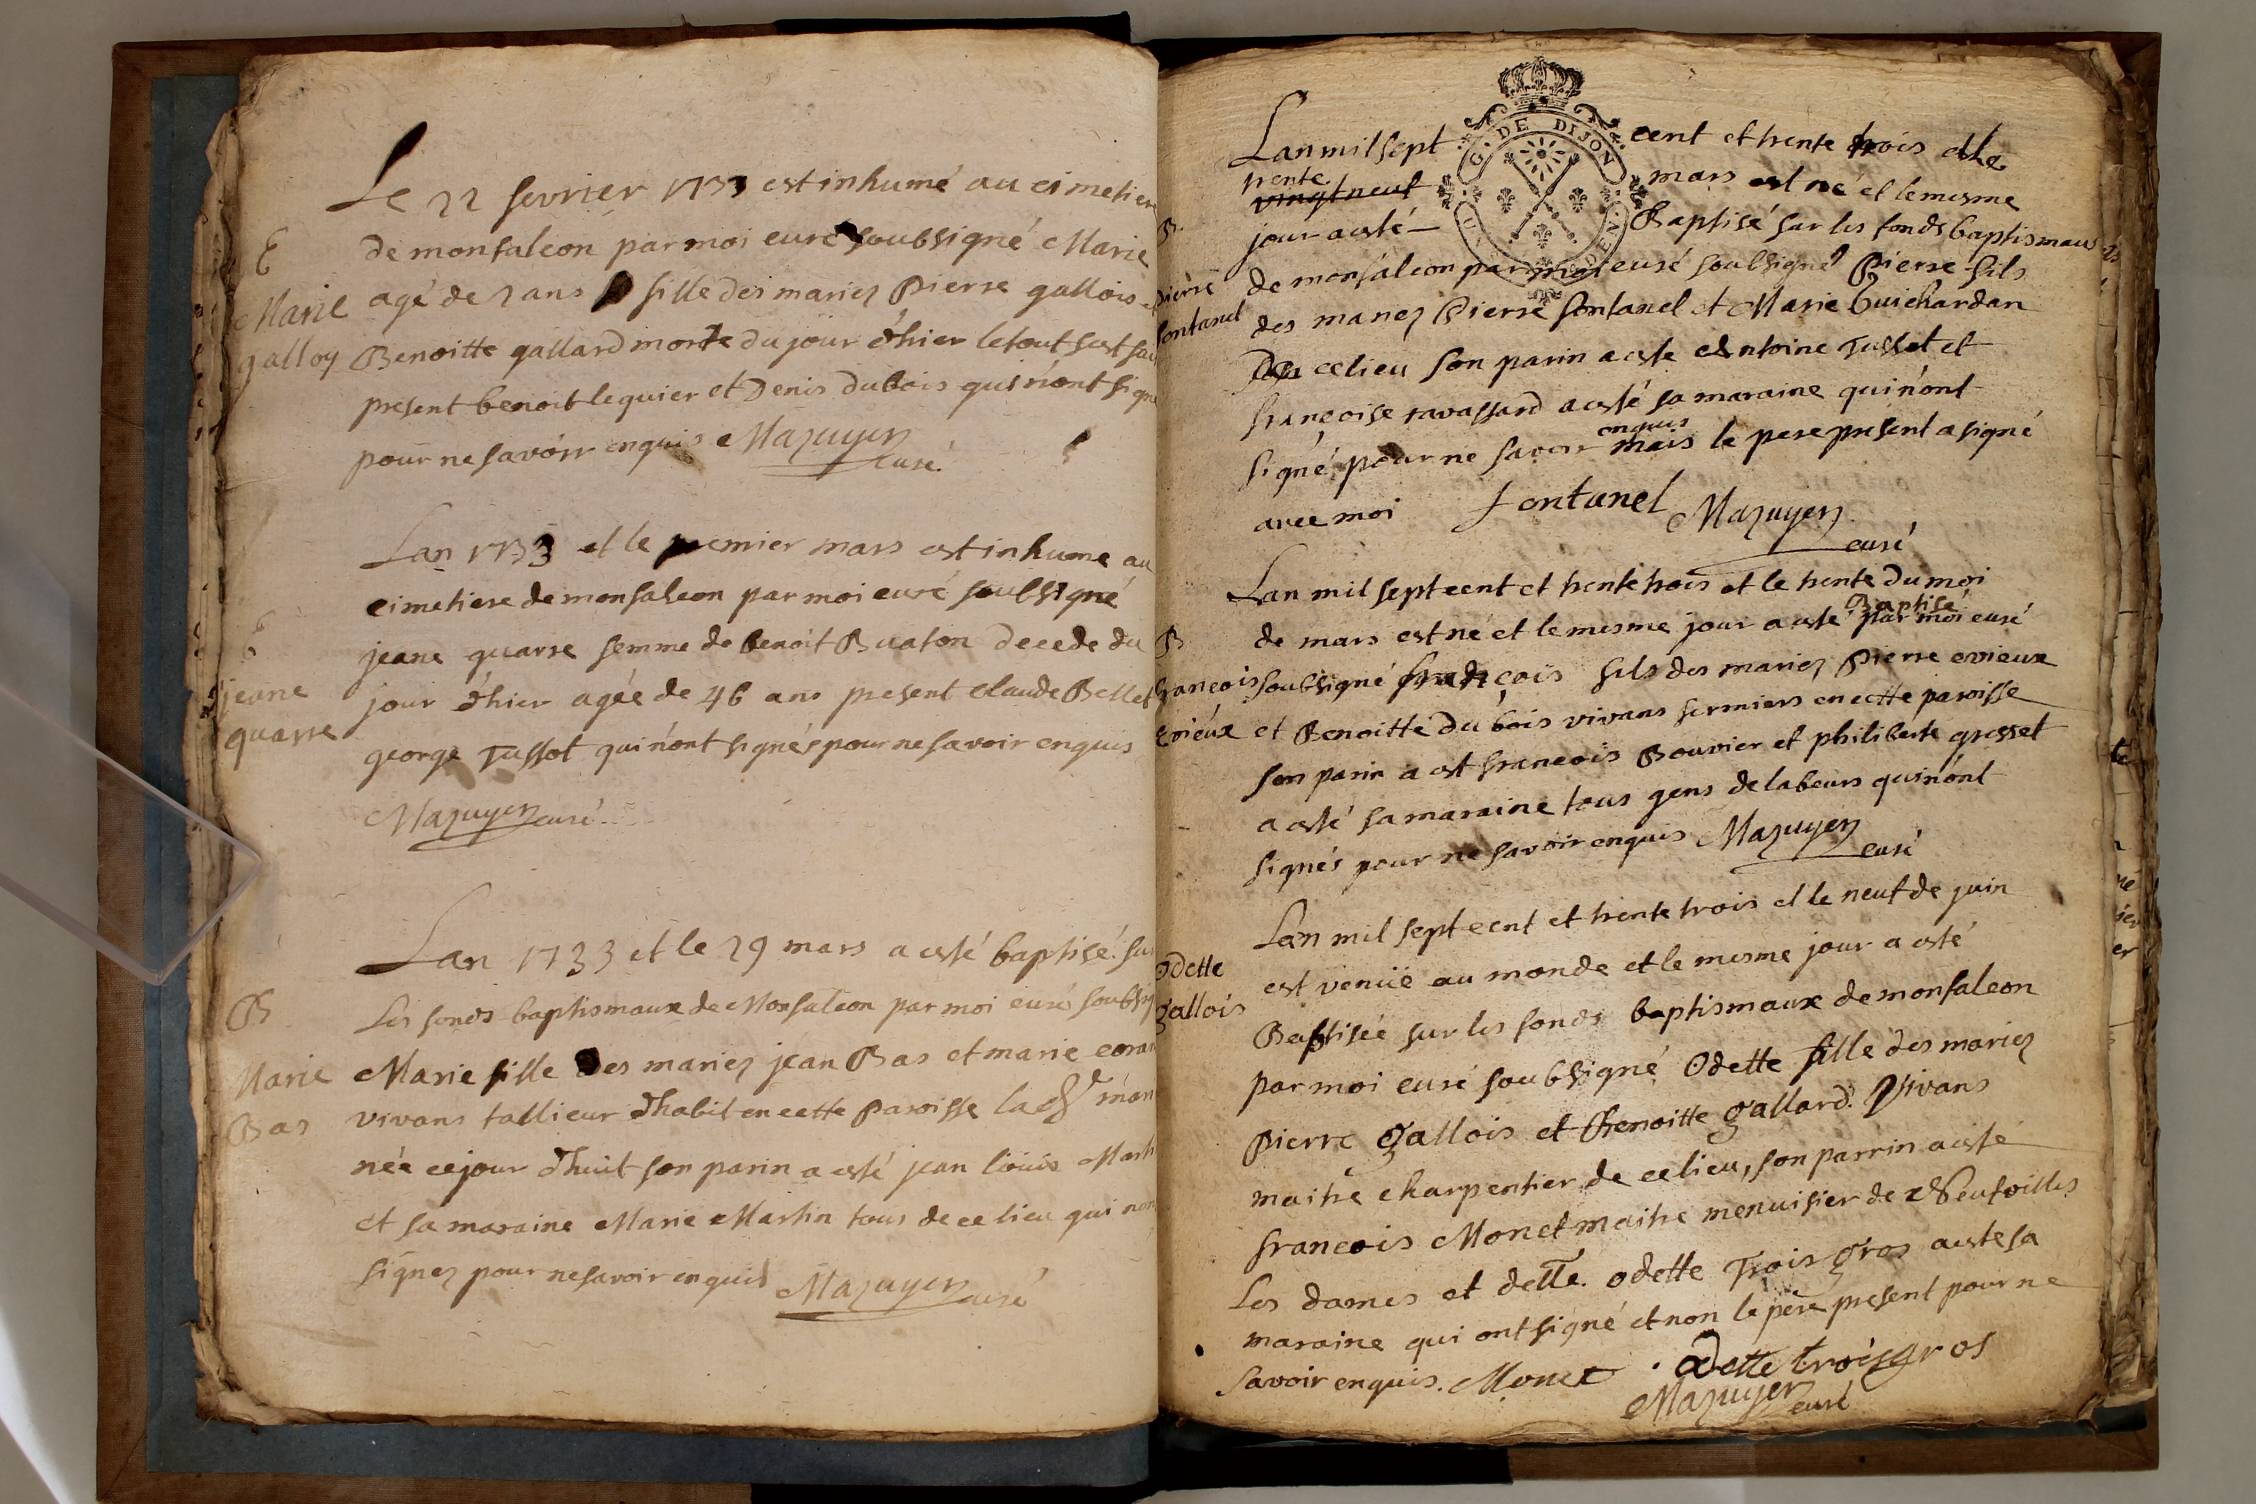 Le 22 fevrier 1733 est inhumé au cimetiere
de monsaleon par moi curé soubsigné Marie
agé de 2 ans fille des mariez Pierre gallois
Benoitte gallard morte du jour d'hier le tout s'est fait
present benoit lequier et Denis dubois qui n'ont signé
pour ne savoir enquis Mazuyer
curé
E
Marie
galloy
Lan 1733 et le premier mars est inhume au
cimetiere de monsaleon par moi curé soubsigné
jeane quarre femme de benoit Buaton decede du
jour d'hier agée de 46 ans present Claude Bellet
george Tussot qui n'ont signés pour ne savoir enquis
Mazuyer curé
E
jeane
quarre
Lan 1733 et le 29 mars a esté baptisé sur
Les fonds baptismaux de Monsaleon par moi curé soubsig
Marie fille des mariez jean Bas et marie
vivans tallieur d'habit en cette Paroisse
née ce jour d'huit son parin a esté jean louis
et sa maraine Marie Martin tous de ce lieu qui n'ont
signez pour ne savoir enquis Mazuyer curé
B
Marie
Bas
G. DE DIJON
Lan mil sept cent et trente trois et le
trente
vingt neuf mars est né et le mesme
jour a esté Baptisé sur les fonds baptismaux
de monsaleon par moi curé soubsigné Pierre fils
des mariez Pierre fontanel et Marie Guichardan
de ce lieu son parin a este Antoine Tussot et
françoise ravassard a esté sa maraine qui n'ont
enquis
signé pour ne savoir mais le pere présent a signé
avec moi fontanel Mazuyer
curé
B
pierre
fontanel
Lan mil sept cent et trente trois et le trente du moi
Baptisé
de mars est né et le mesme jour a esté par moi curé
soubsigné françois fils des mariez Pierre evieux
et Benoitte du bois vivans fermiers en cette paroisse
son parin a est francois Bouvier et philiberte grosset
a esté sa maraine tous gens de labeurs qui n'ont
signés pour ne savoir enquis Mazuyer
curé
B
francois
Evieux
Lan mil sept cent et trente trois et le neuf de juin
est venüe au monde et le mesme jour a esté
Baptisée sur les fonds baptismaux de monsaleon
par moi curé soubsigné Odette fille des mariez
Pierre gallois et Benoitte gallard. Vivans
maitre charpentier de ce lieu, son parrin a esté
francois Monet maitre menuisier de Neufvilles
Les dames et delle. odette Trois gros a este sa
maraine qui ont signé et non le pere present pour ne
savoir enquis. Monet Odette troisgros
Mazuyer
curé
Odette
gallois